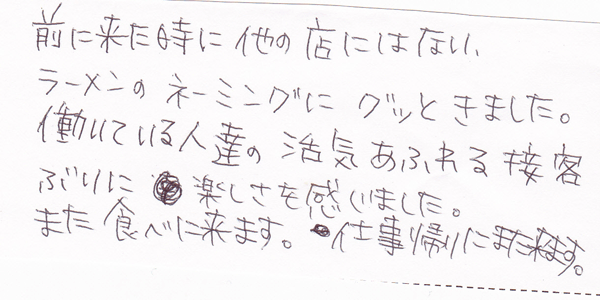 前に来た時に他の店にはない、
ラーメンのネーミングにグッときました。
働いている人達の活気あふれる接客
ぶりに楽しさを感じました。
また食べに来ます。仕事帰りにまた来ます。